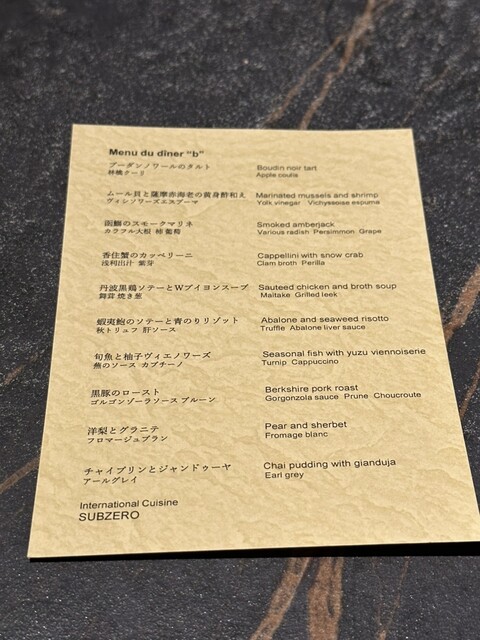 Menu du dîner "b"
ブーダンノワールのタルト Boudin noir tart
林檎クーリ Apple coulis
ムール貝と薩摩赤海老の黄身酢和え Marinated mussels and shrimp
ヴィシソワーズエスプーマ Yolk vinegar Vichyssoise espuma
函館鰤のスモークマリネ Smoked amberjack
カラフル大根 柿 葡萄 Various radish Persimmon Grape
香住蟹のカッペリーニ Cappellini with snow crab
浅利出汁 紫芽 Clam broth Perilla
丹波黒鶏ソテーとWブイヨンスープ Sauteed chicken and broth soup
舞茸 焼き葱 Maitake Grilled leek
蝦夷鮑のソテーと青のりリゾット Abalone and seaweed risotto
秋トリュフ 肝ソース Truffle Abalone liver sauce
旬魚と柚子ヴィエノワーズ Seasonal fish with yuzu viennoiserie
蕪のソース カプチーノ Turnip Cappuccino
黒豚のロースト Berkshire pork roast
ゴルゴンゾーラソース プルーン Gorgonzola sauce Prune Choucroute
洋梨とグラニテ Pear and sherbet
フロマージュブラン Fromage blanc
チャイプリンとジャンドゥーヤ Chai pudding with gianduja
アールグレイ Earl grey
International Cuisine
SUBZERO